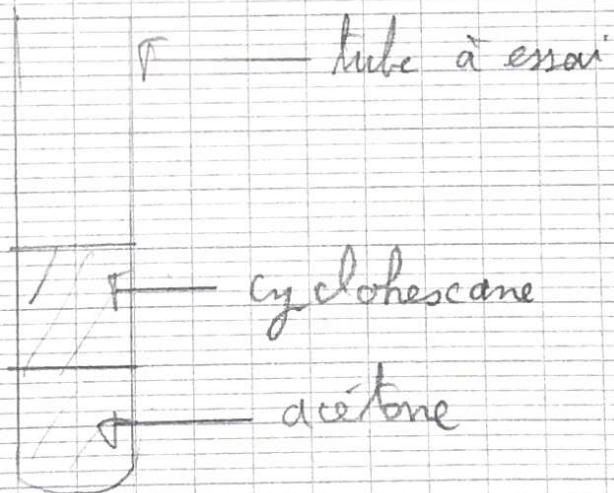 tube à essai
cyclohexane
acétone